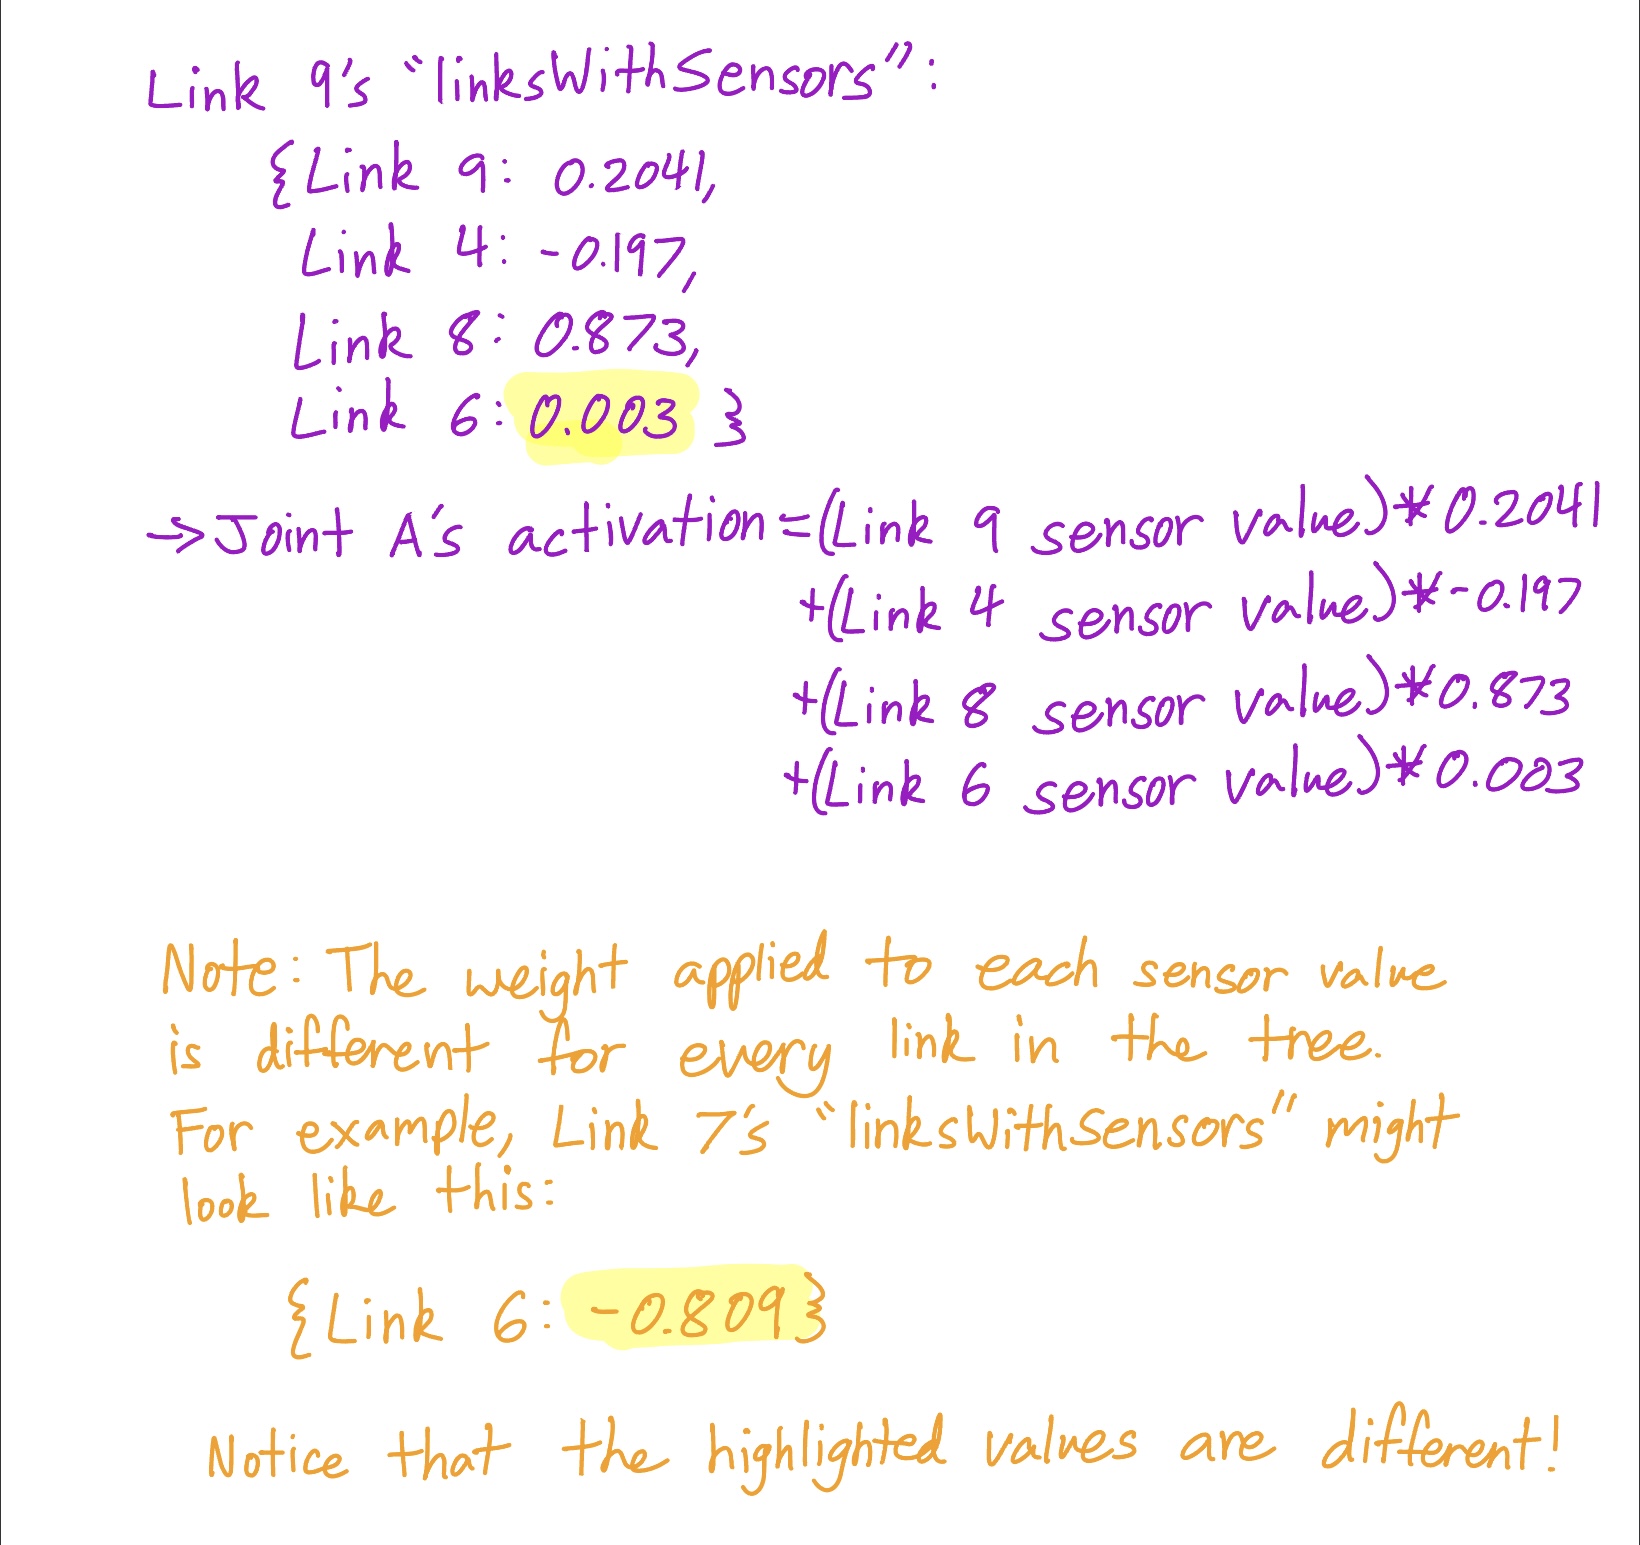 Link 9's "linksWithSensors":
{Link 9: 0.2041,
Link 4: -0.197,
Link 8: 0.873,
Link 6: 0.003 }
→ Joint A's activation = (Link 9 sensor value)*0.2041
+(Link 4 sensor value)*-0.197
+(Link 8 sensor value)*0.873
+(Link 6 sensor value)*0.003
Note: The weight applied to each sensor value
is different for every link in the tree.
For example, Link 7's "linksWithSensors" might
look like this:
{Link 6: -0.809}
Notice that the highlighted values are different!